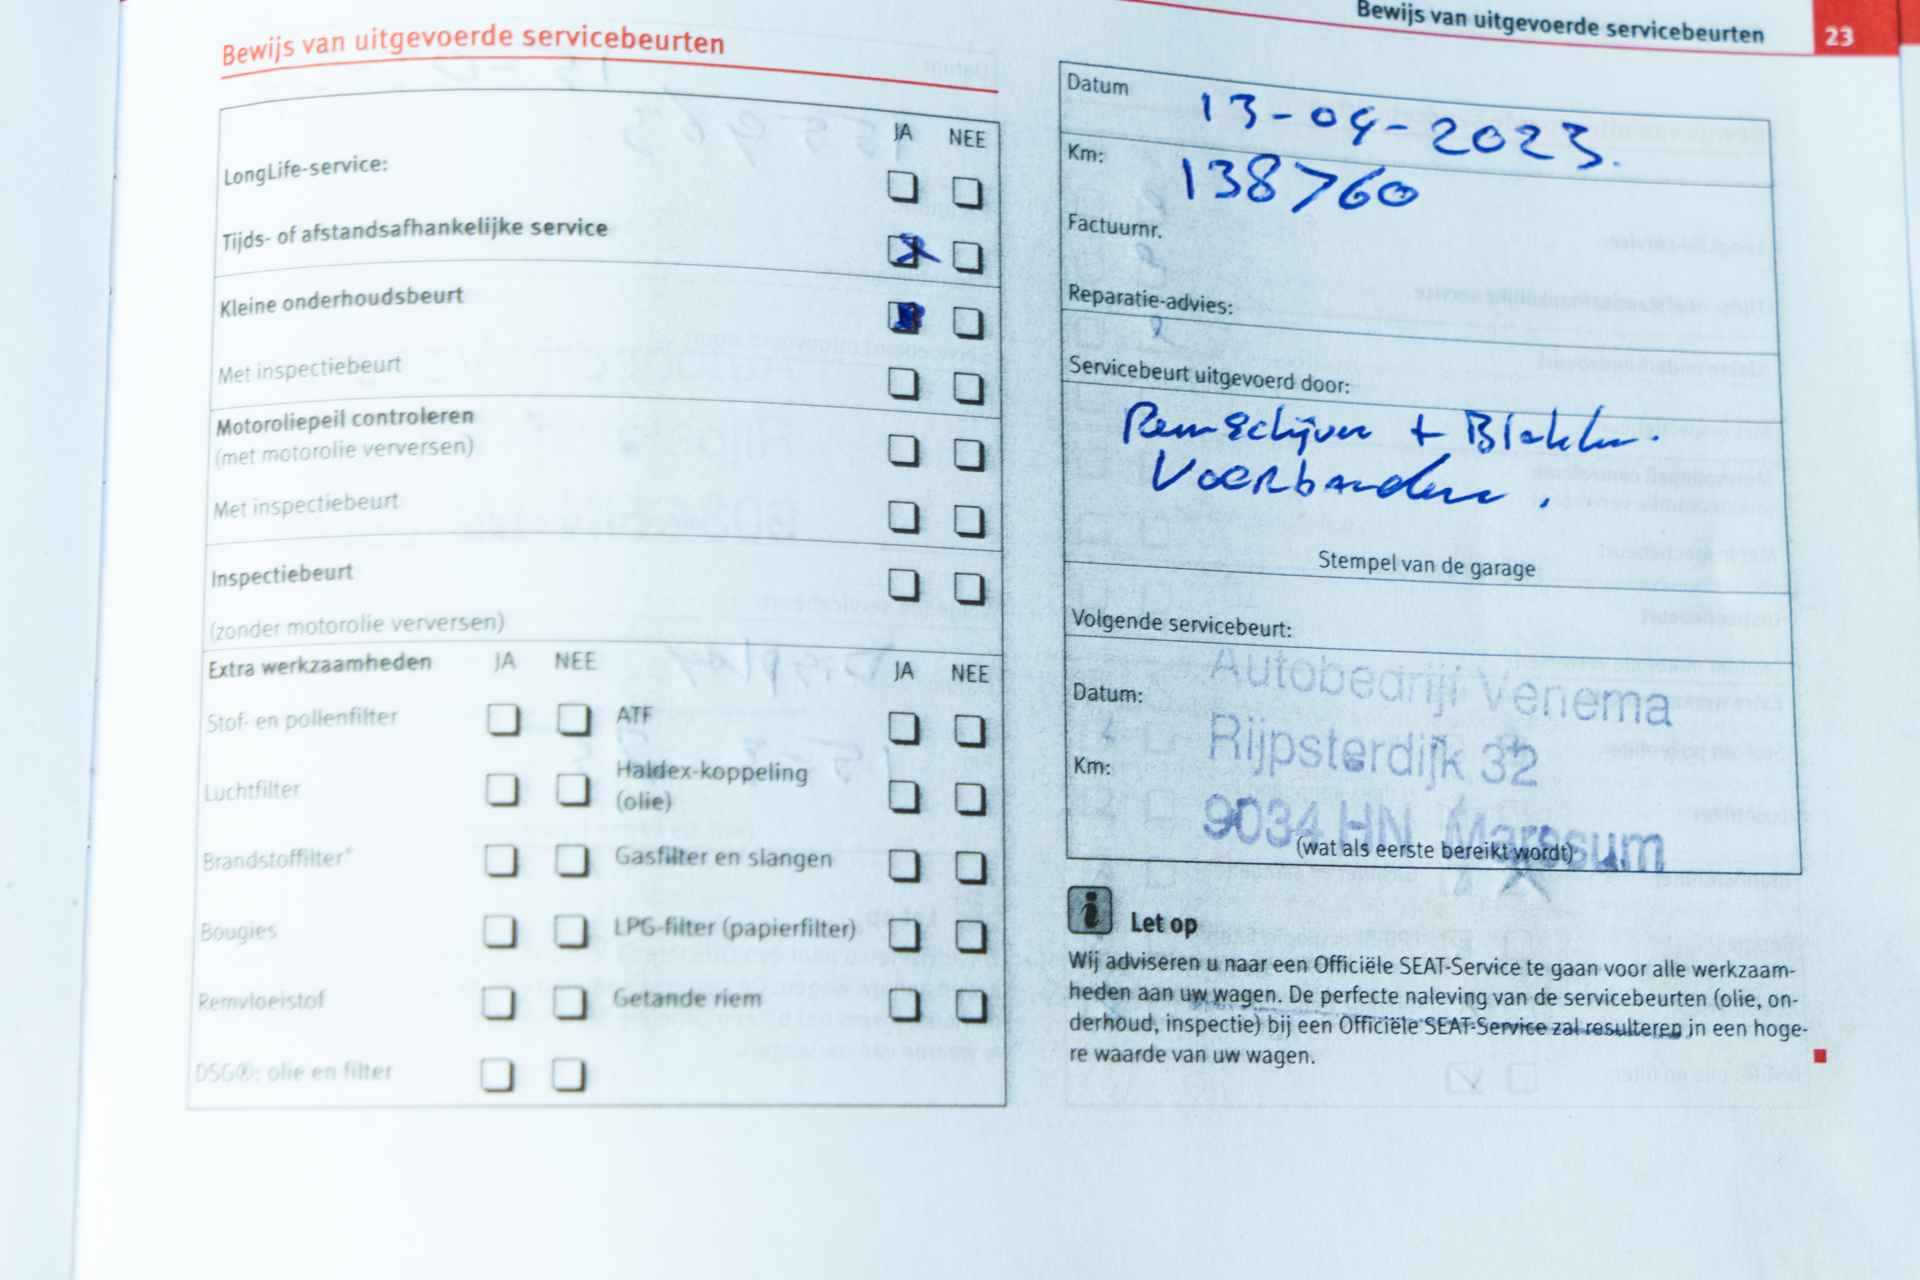 Bewijs van uitgevoerde servicebeurten
23
Bewijs van uitgevoerde servicebeurten
JA NEE
LongLife-service:
Tijds- of afstandsafhankelijke service
Kleine onderhoudsbeurt
Met inspectiebeurt
Motoroliepeil controleren
(met motorolie verversen)
Met inspectiebeurt
Inspectiebeurt
(zonder motorolie verversen)
Extra werkzaamheden JA NEE JA NEE
Stof- en pollenfilter ATF
Luchtfilter Haldex-koppeling
(olie)
Brandstoffilter* Gasfilter en slangen
Bougies LPG-filter (papierfilter)
Remvloeistof Getande riem
DSG®: olie en filter
Datum 13-04-2023.
Km: 138760
Factuurnr.
Reparatie-advies:
Servicebeurt uitgevoerd door:
Remschijven + Blokken.
Voorbanden.
Stempel van de garage
Volgende servicebeurt:
Autobedrijf Venema
Datum:
Rijpsterdijk 32
Km:
9034 HN Marssum
(wat als eerste bereikt wordt)
Let op
Wij adviseren u naar een Officiële SEAT-Service te gaan voor alle werkzaam-
heden aan uw wagen. De perfecte naleving van de servicebeurten (olie, on-
derhoud, inspectie) bij een Officiële SEAT-Service zal resulteren in een hoge-
re waarde van uw wagen.